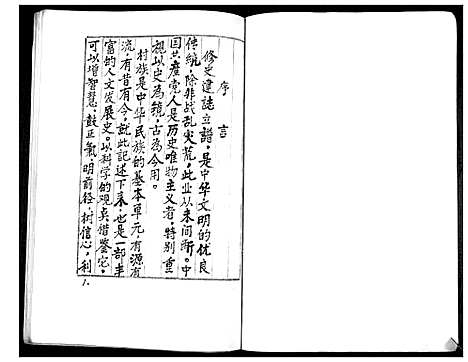 序言
修史建誌立谱，是中华文明的优良
传统，除非战乱灾荒，此业以未间断。中
国共產党人是历史唯物主义者，特别重
视以史为镜，古为今用。
村族是中华民族的基本单元，有源有
流，有昔有今，就此记述下来，也是一部丰
富的人文发展史。以科学的观点借鉴它，
可以增智慧，鼓正氣，明前径，树信心，利
1.